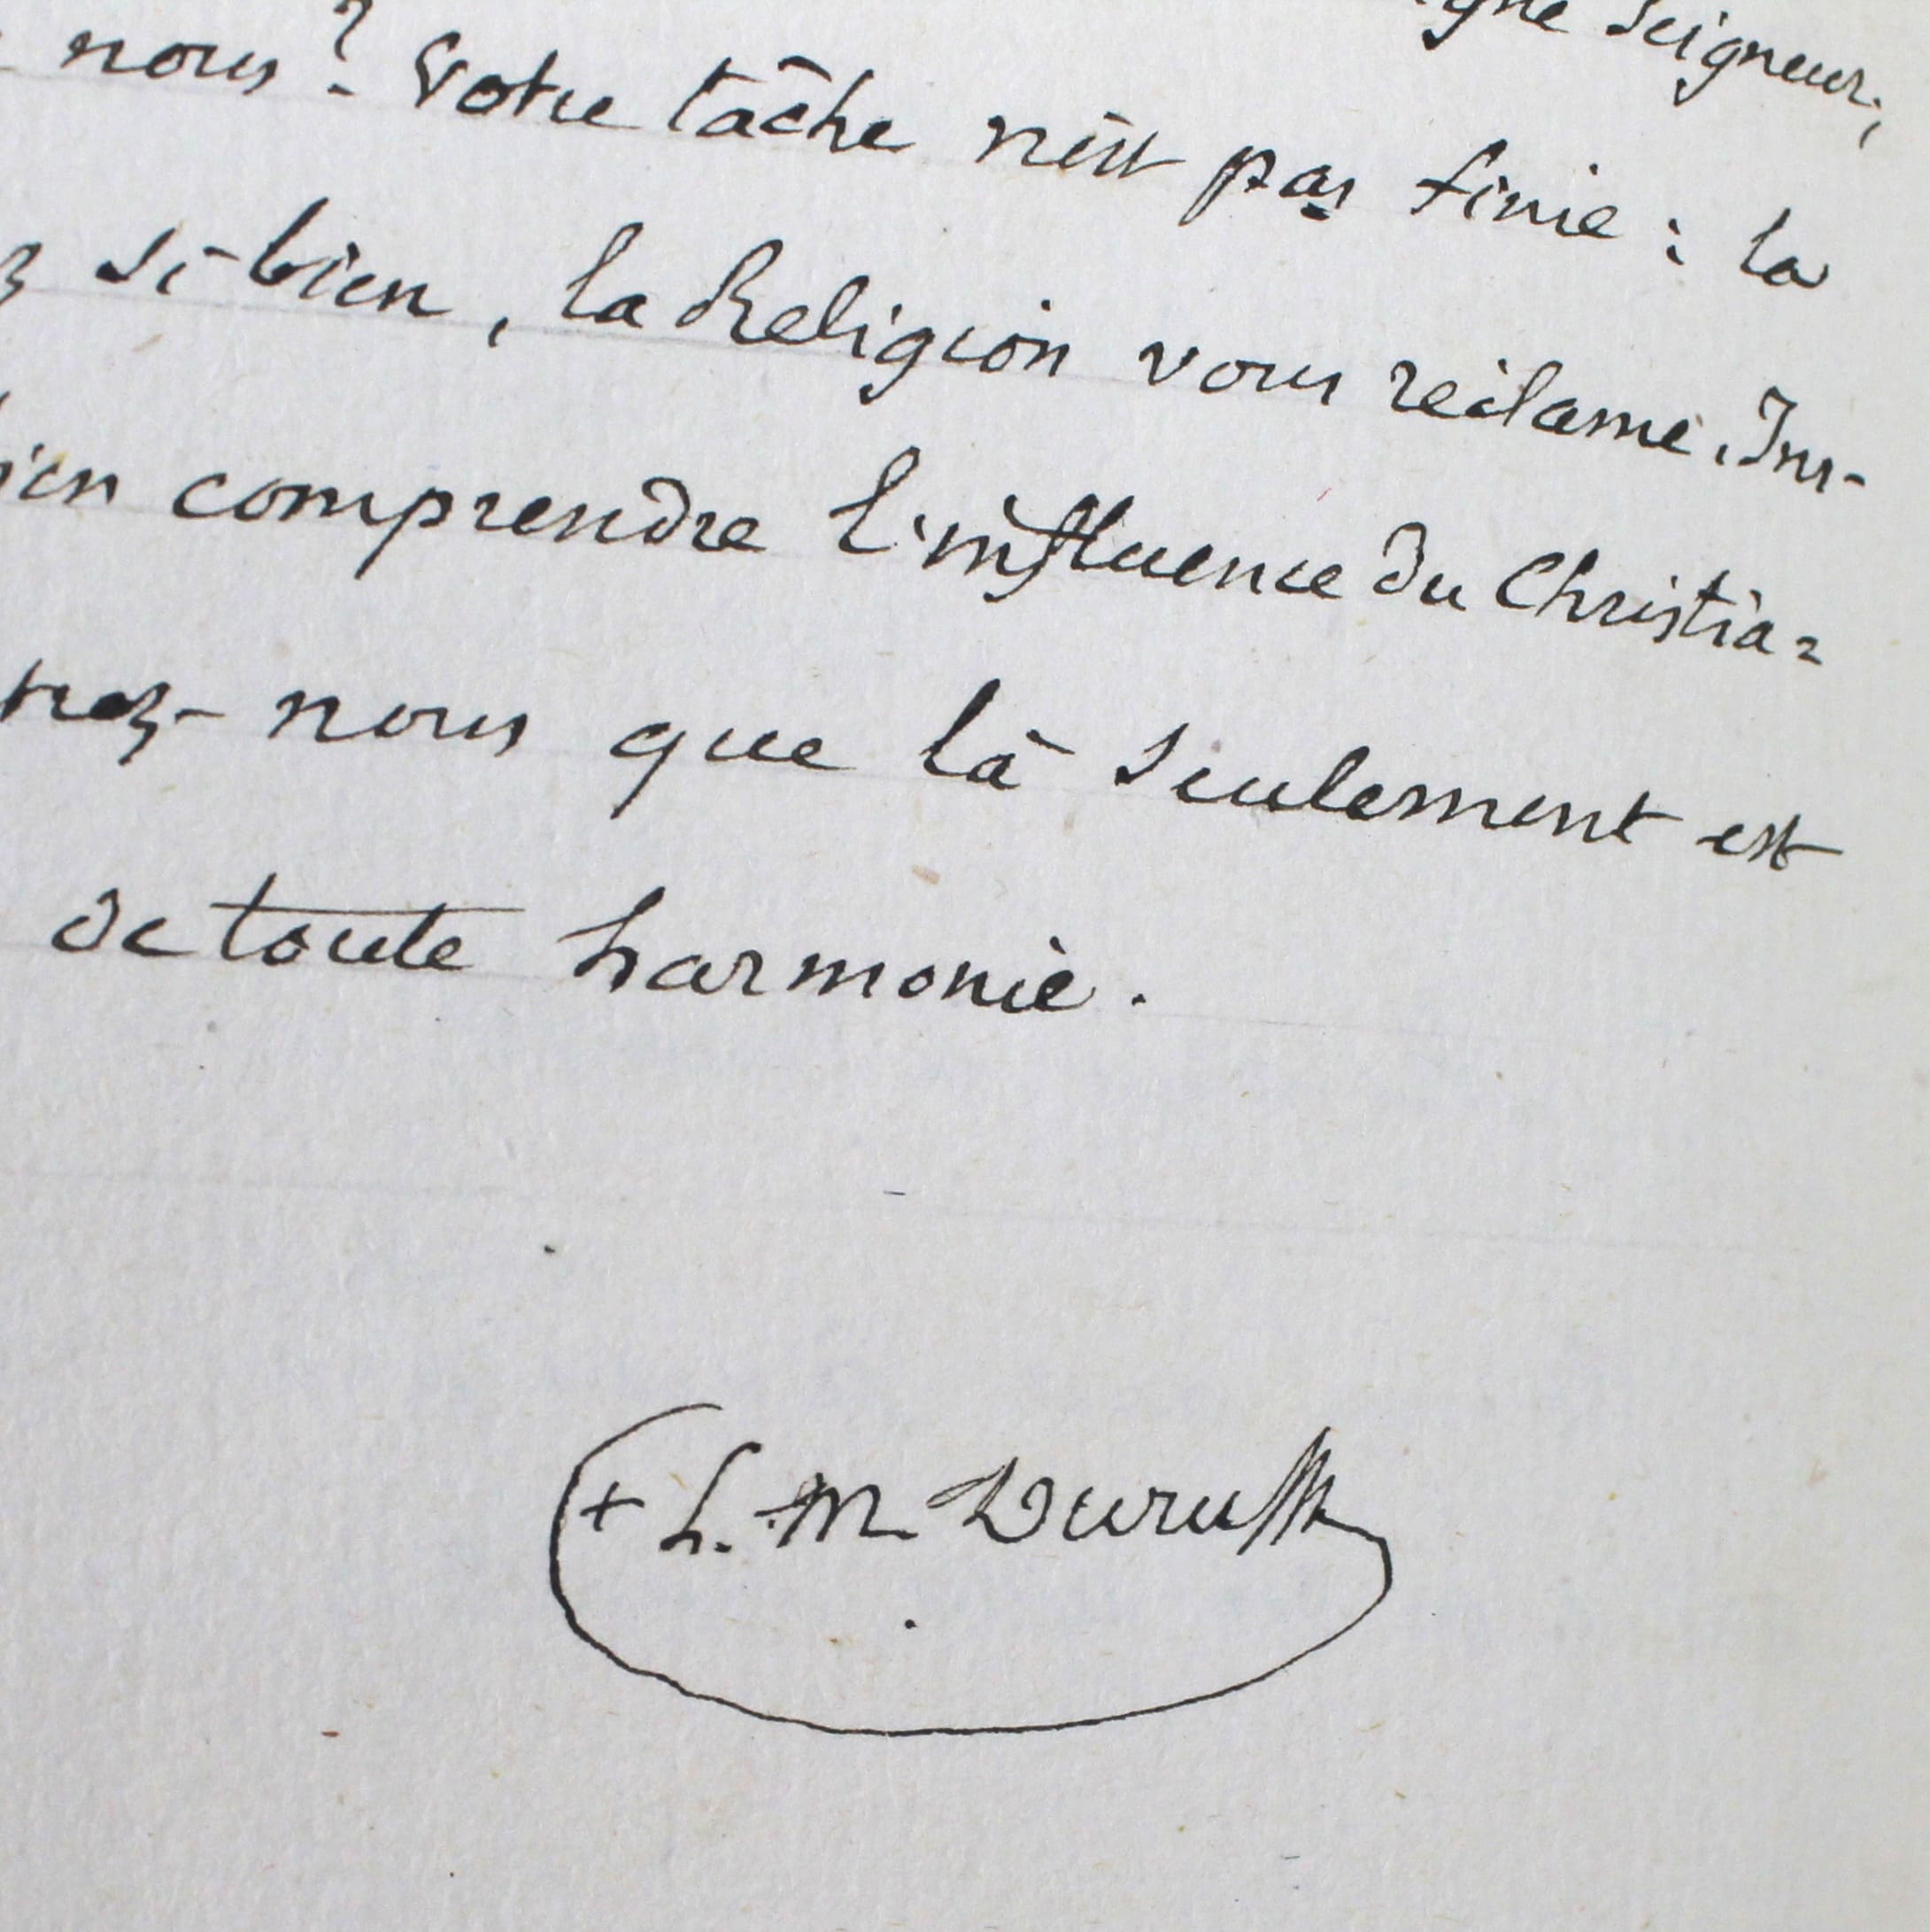 Seigneur,
nous? - Votre tâche n'est pas finie : la
si-bien, la Religion vous réclame. Ins-
comprendre l'influence du Christia=
nez-nous que là seulement est
de toute harmonie.
+ L. M.